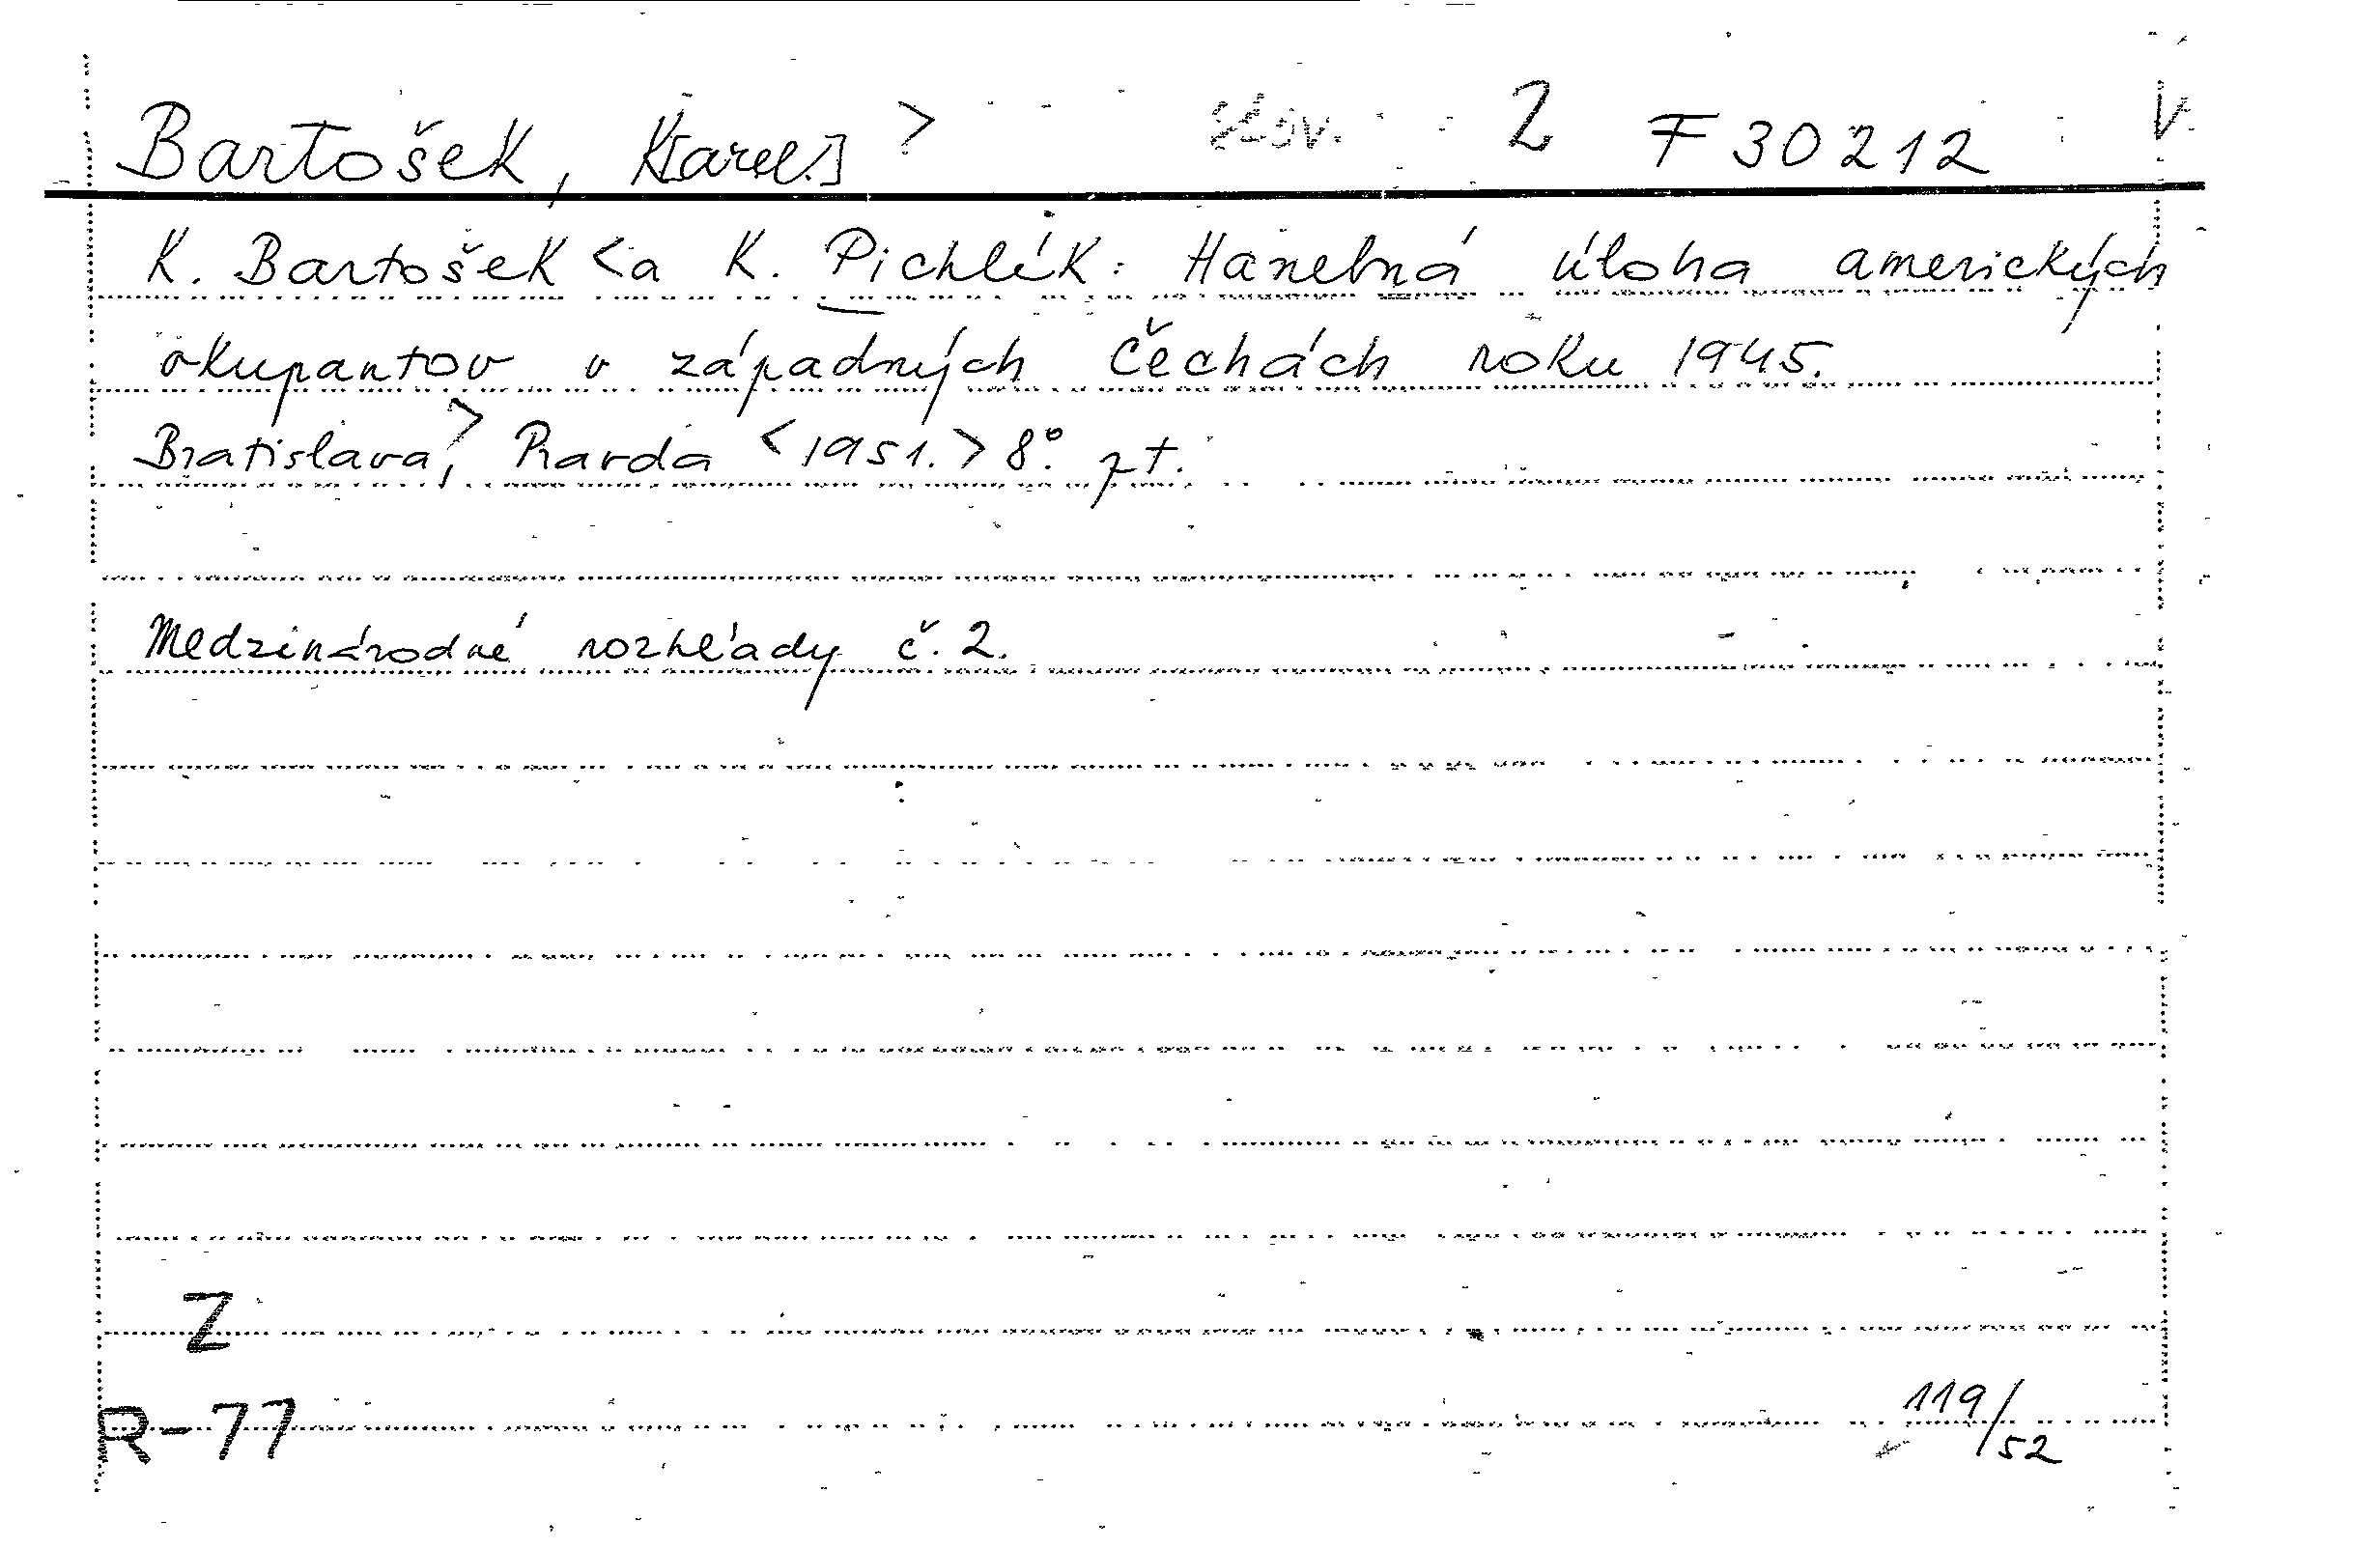 Bartošek, K[arel.] > 2 F 30212 V.
K. Bartošek <a K. Pichlík: Hanebná úloha amerických
okupantov v západných Čechách roku 1945.
Bratislava,> Pravda <1951.> 8°. pt.
Medzinárodné rozhľady č. 2.
Z
R-77
119/52